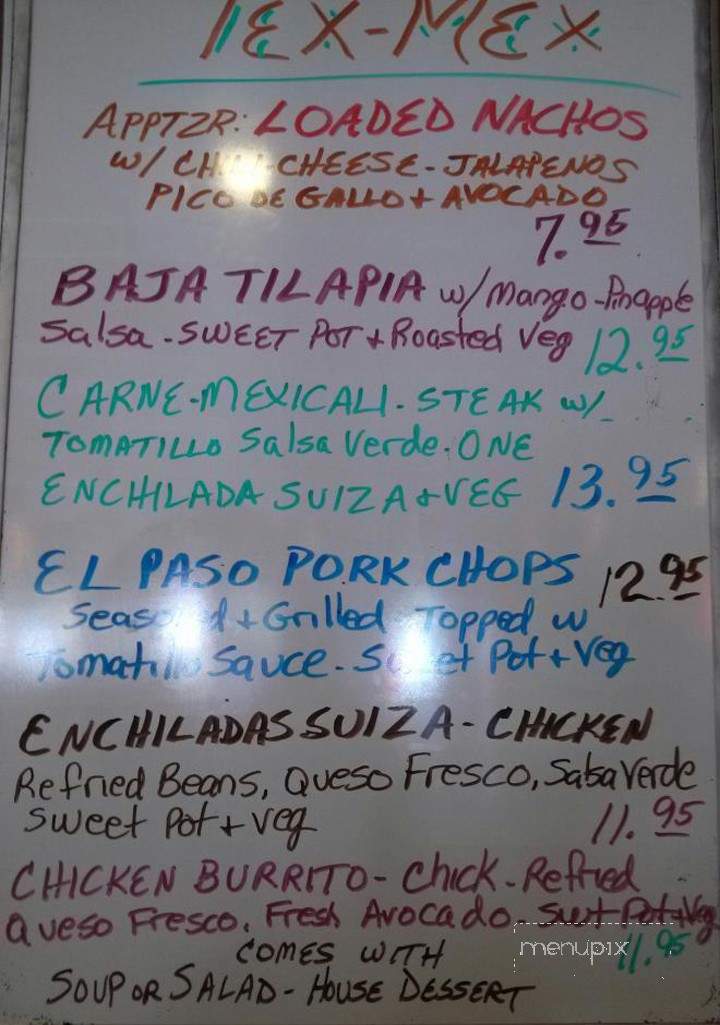 TEX-MEX
APPTZR: LOADED NACHOS
W/ CHILI-CHEESE-JALAPENOS
PICO DE GALLO + AVOCADO
7.95
BAJA TILAPIA w/ Mango-Pinapple
Salsa-SWEET POT + Roasted Veg 12.95
CARNE-MEXICALI-STEAK w/
TOMATILLO Salsa Verde-ONE
ENCHILADA SUIZA + VEG 13.95
EL PASO PORK CHOPS 12.95
Seasoned + Grilled Topped w
Tomatillo Sauce-Sweet Pot + Veg
ENCHILADAS SUIZA-CHICKEN
Refried Beans, Queso Fresco, Salsa Verde
Sweet Pot + Veg 11.95
CHICKEN BURRITO-Chick-Refried
Queso Fresco, Fresh Avocado-Swet Pot + Veg
11.95
COMES WITH
SOUP OR SALAD-HOUSE DESSERT
menupix